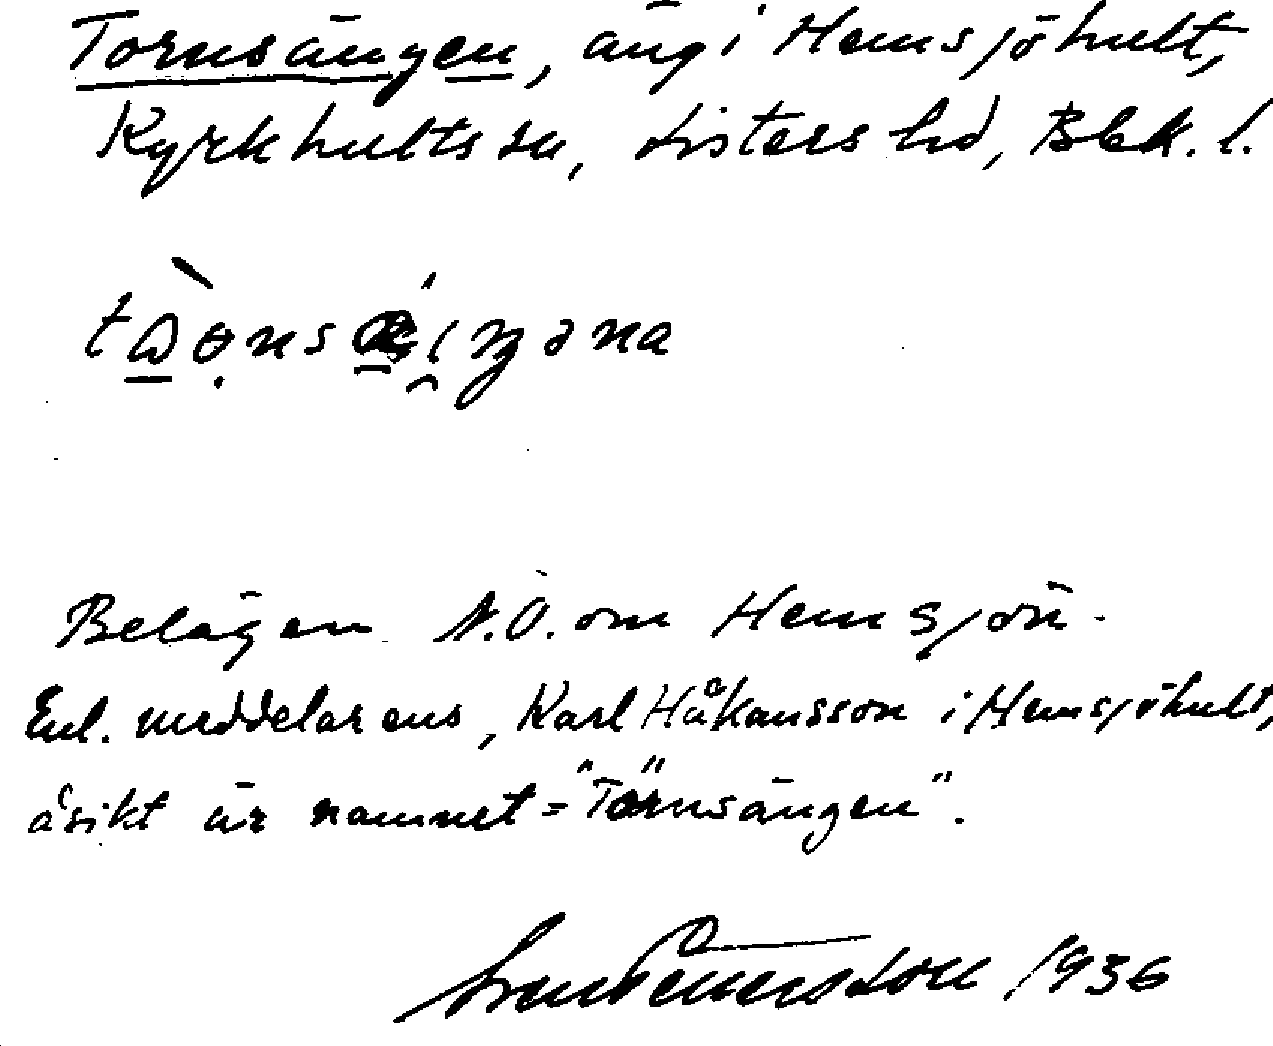 Tornsängen, äng i Hemsjöhult,
Kyrkhults sn, Listers hd, Blek. l.
Belägen N.O. om Hemsjön.
Enl. meddelarens, Karl Håkansson i Hemsjöhult,
åsikt är namnet = "Törnsängen".
Sven Pettersson 1936